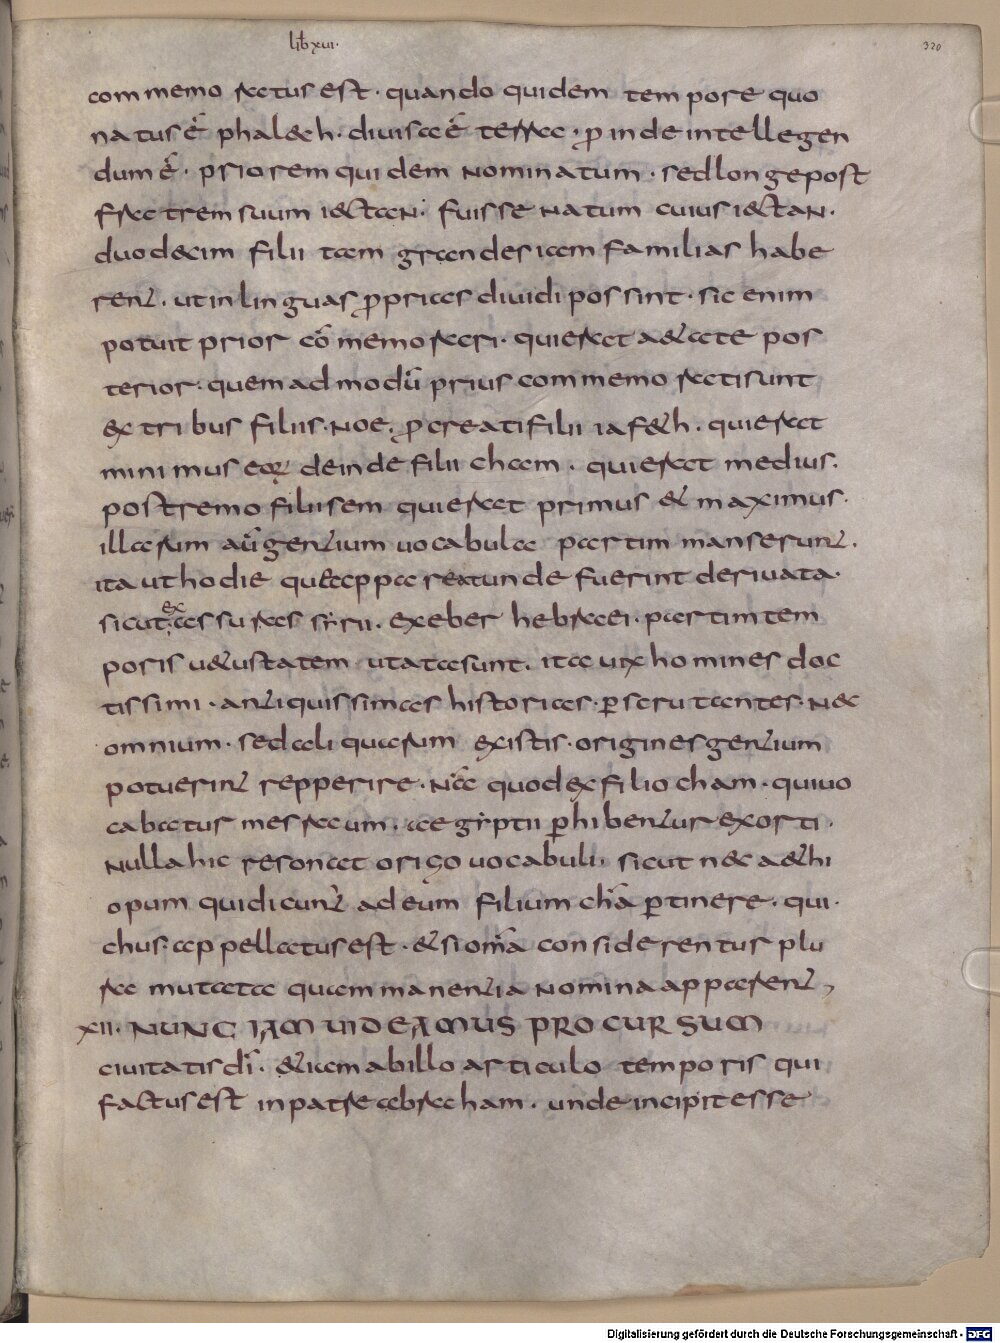 lib xvi·
320
commemoratus est· quando quidem tempore quo
natus ē phalech· divisa ē terra· p̄inde intellegen
dum ē· priorem quidem nominatum· sed longe post
fratrem suum iectan· fuisse natum cuius iectan·
duodecim filii tam grandes iam familias habe
rent· ut in linguas p̄prias dividi possint· sic enim
potuit prior cōmemorari· qui erat aetate pos
terior· quem ad modū prius commemorati sunt
ex tribus filiis· noe· p̄creati filii iafeth· qui erat
minimus eoꝝ deinde filii cham· qui erat medius·
postremo filii sem qui erat primus et maximus·
illarum aū gentium uocabula partim manserunt·
ita ut hodie que appareat unde fuerint derivata·
sicut ex assuras syrii· ex eber hebraei· partim tem
poris uetustatem utata sunt· ita uix homines doc
tissimi· antiquissimas historias· ꝑscrutantes· nec
omnium· sed aliquarum ex istis· origines gentium
potuerint repperire· nā quod ex filio cham· qui uo
cabatus mesraum· aegyptii ꝑhibentur exorti·
nulla hic resonat origo uocabuli· sicut nec aethi
opum qui dicunt ad eum filium chā ꝑtinere· qui·
chus· appellatus est· et si omīa considerentur plu
ra mutata quam manentia nomina apparent,
xii· NUNC IAM UIDEAMUS PROCURSUM
ciuitatis dī· etiam ab illo articulo temporis qui
factus est in patre abraham· unde incipit esse
Digitalisierung gefördert durch die Deutsche Forschungsgemeinschaft - DFG